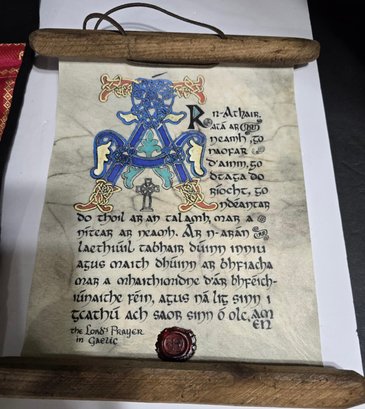 ÁR n-Athair,
atá ar
neamh, go
naofar
d'ainm, go
dtaga do
ríocht, go
ndéantar
do thoil ar an talamh, mar a
nítear ar neamh. Ár n-arán
laethiúil tabhair dúinn inniu
agus maith dhúinn ár bhfiacha
mar a mhaithimidne d'ár bhféich-
iúnaithe féin, agus ná lig sinn i
gcathú ach saor sinn ó olc, AM
EN
the Lord's Prayer
in Gaelic